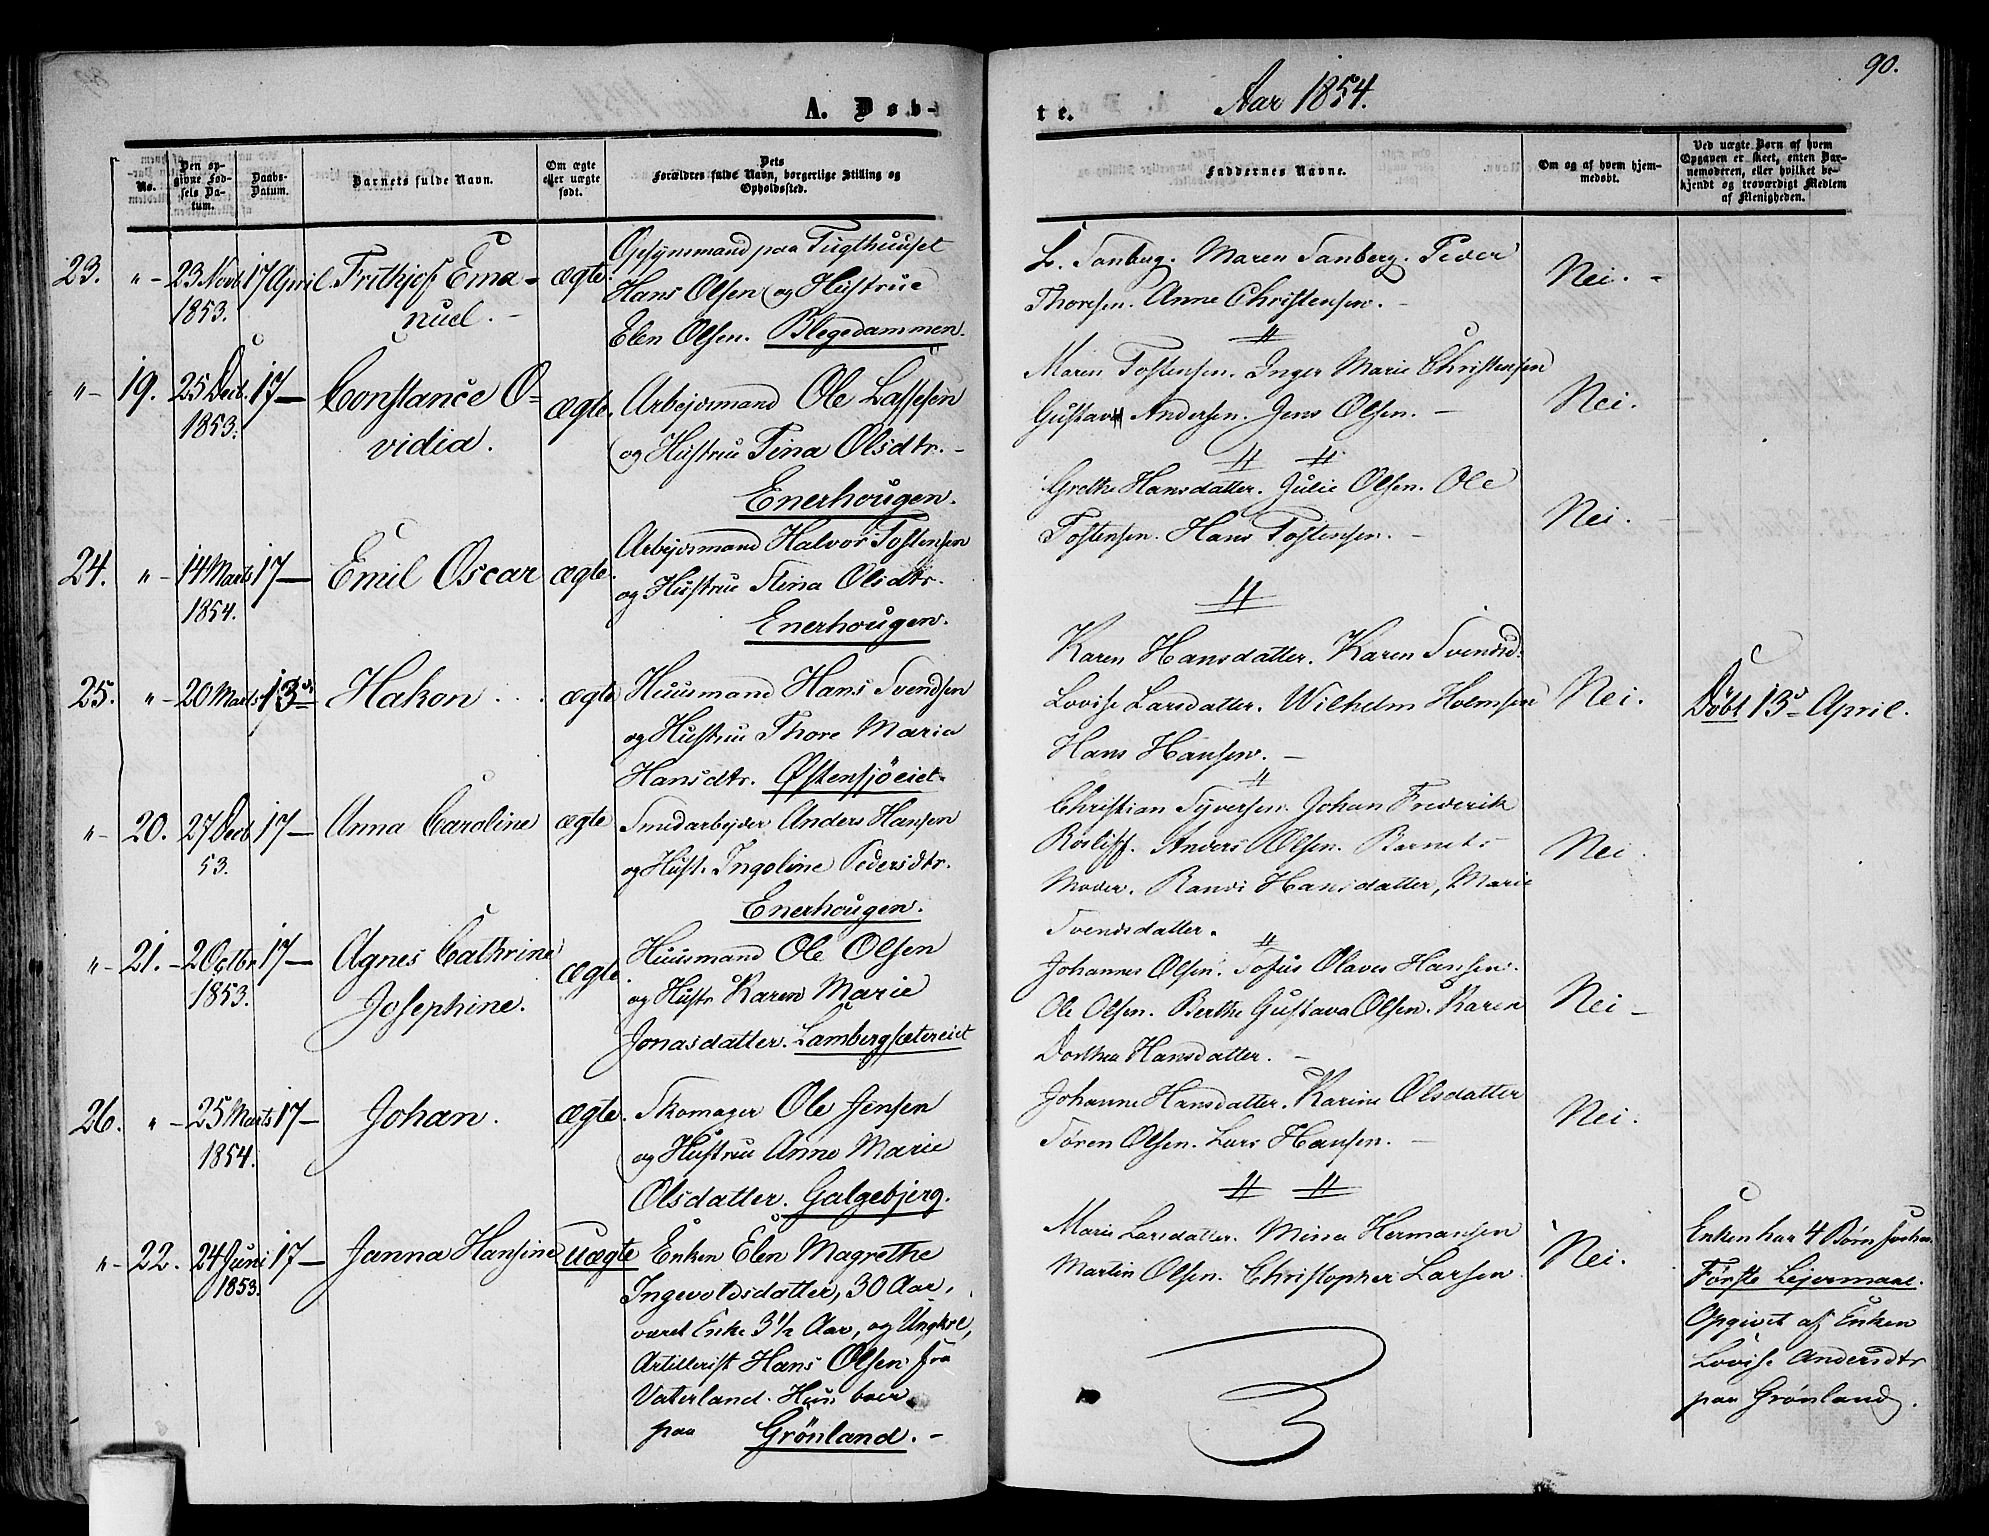 90.
Aar 1854.
A. Døb-
te.
No.
Den op-
givne Fød-
sels Da-
tum.
Daabs-
Datum.
Barnets fulde Navn.
Om ægte
eller uægte
født.
Dets
Forældres fulde Navn, borgerlige Stilling og
Opholdssted.
Faddernes Navne.
Om og af hvem hjem-
medøbt.
Ved uægte Børn af hvem
Opgaven er skeet, enten Bar-
nemoderen, eller hvilket be-
kjendt og troværdigt Medlem
af Menigheden.
23. "- 23 Novb 17 April Frithjof Ema-
1853. nuel. -
ægte.
Opsynsmand paa Tugthuuset
Hans Olsen og Hustrue
Elen Olsen. Blegedammen.
L. Tanberg. Maren Tanberg. Peder
Thoresen. Anne Christensen. -
Nei. -
"- 19. 25 Decb. 17 - Constance O-
1853. vidia.
ægte.
Arbejdsmand Ole Lassesen
og Hustru Tina Olsdtr. -
Enerhougen.
Maren Tostensen. Inger Marie Christensen
Gustav Andersen. Jens Olsen. -
Nei.
24. "- 14 Marts 17 - Emil Oscar
1854.
ægte.
Arbejdsmand Halvor Tostensen
og Hustru Stina Olsdtr.
Enerhougen.
Grethe Hansdatter. Julie Olsen. Ole
Tostensen. Hans Tostensen. -
Nei.
25. "- 20 Marts 13de Hakon
ægte
Huusmand Hans Svendsen
og Hustru Thore Maria
Hansdtr. Østensjøeiet.
Karen Hansdatter. Karen Svendsd.
Lovise Larsdatter. Wilhelm Holmsen
Hans Hansen. -
Nei.
Døbt 13de April.
"- 20. 27 Decb 17 - Anna Caroline
53.
ægte
Smedarbejder Anders Hansen
og Hust. Ingoline Pedersdtr.
Enerhougen.
Christian Syversen. Johan Frederik
Rosliff. Anders Olsen. Barnets
Moder. Randi Hansdatter, Marie
Svendsdatter.
Nei.
"- 21. - 2 Octbr 17 - Agnes Cathrine
1853. Josephine.
ægte.
Huusmand Ole Olsen
og Hustr Karen Marie
Jonasdatter. Lambergsætereiet
Johannes Olsen. Tofus Olaves Hansen.
Ole Olsen. Berthe Gustava Olsen. Karen
Dorthea Hansdatter. -
Nei -
26. "- 25 Marts 17 - Johan.
1854.
ægte.
Skomager Ole Jensen
og Hustru Anne Marie
Olsdatter. Galgebjerg.
Johanne Hansdatter. Karine Olsdatter
Søren Olsen. Lars Hansen. -
Nei.
"- 22. 24 Juni 17 - Janna Hansine
1853.
uægte
Enken Elen Magrethe
Ingevoldsdatter, 30 Aar,
været Enke 3 1/2 Aar, og Ungkrl,
Artillerist Hans Olsen fra
Vaterland. Hun boer
paa Grönland. -
Marie Larsdatter. Mina Hermansen
Martin Olsen. Christopher Larsen.
Nei.
Enken har 4 Børn
Første Lejermaal.
Opgivet af Enken
Lovise Andersdtr
paa Grønland.